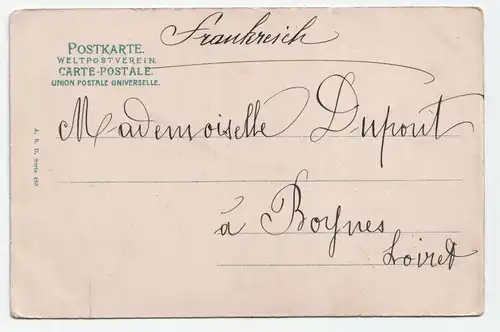 Frankreich
POSTKARTE.
WELTPOSTVEREIN.
CARTE-POSTALE.
UNION POSTALE UNIVERSELLE.
Mademoiselle Dupont
à Boynes
Loiret
A. S. D. Serie 489